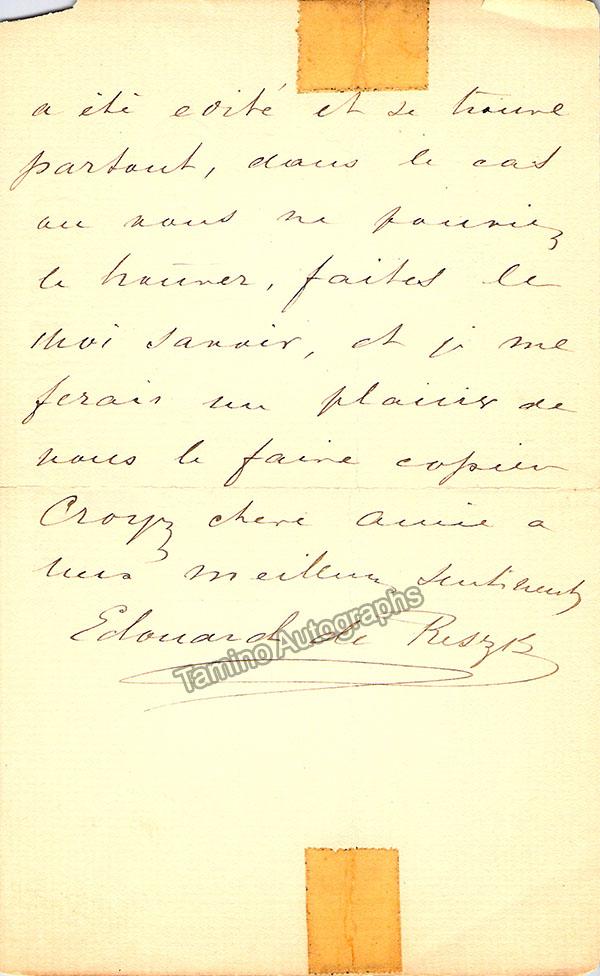 a été edité et se trouve
partout, dans le cas
ou vous ne pouviez
le trouver, faites le
moi savoir, et je me
ferais un plaisir de
vous le faire copier
Croyez chere amie a
mes meilleurs sentiments
Edouard de Reszke
Tamino Autographs